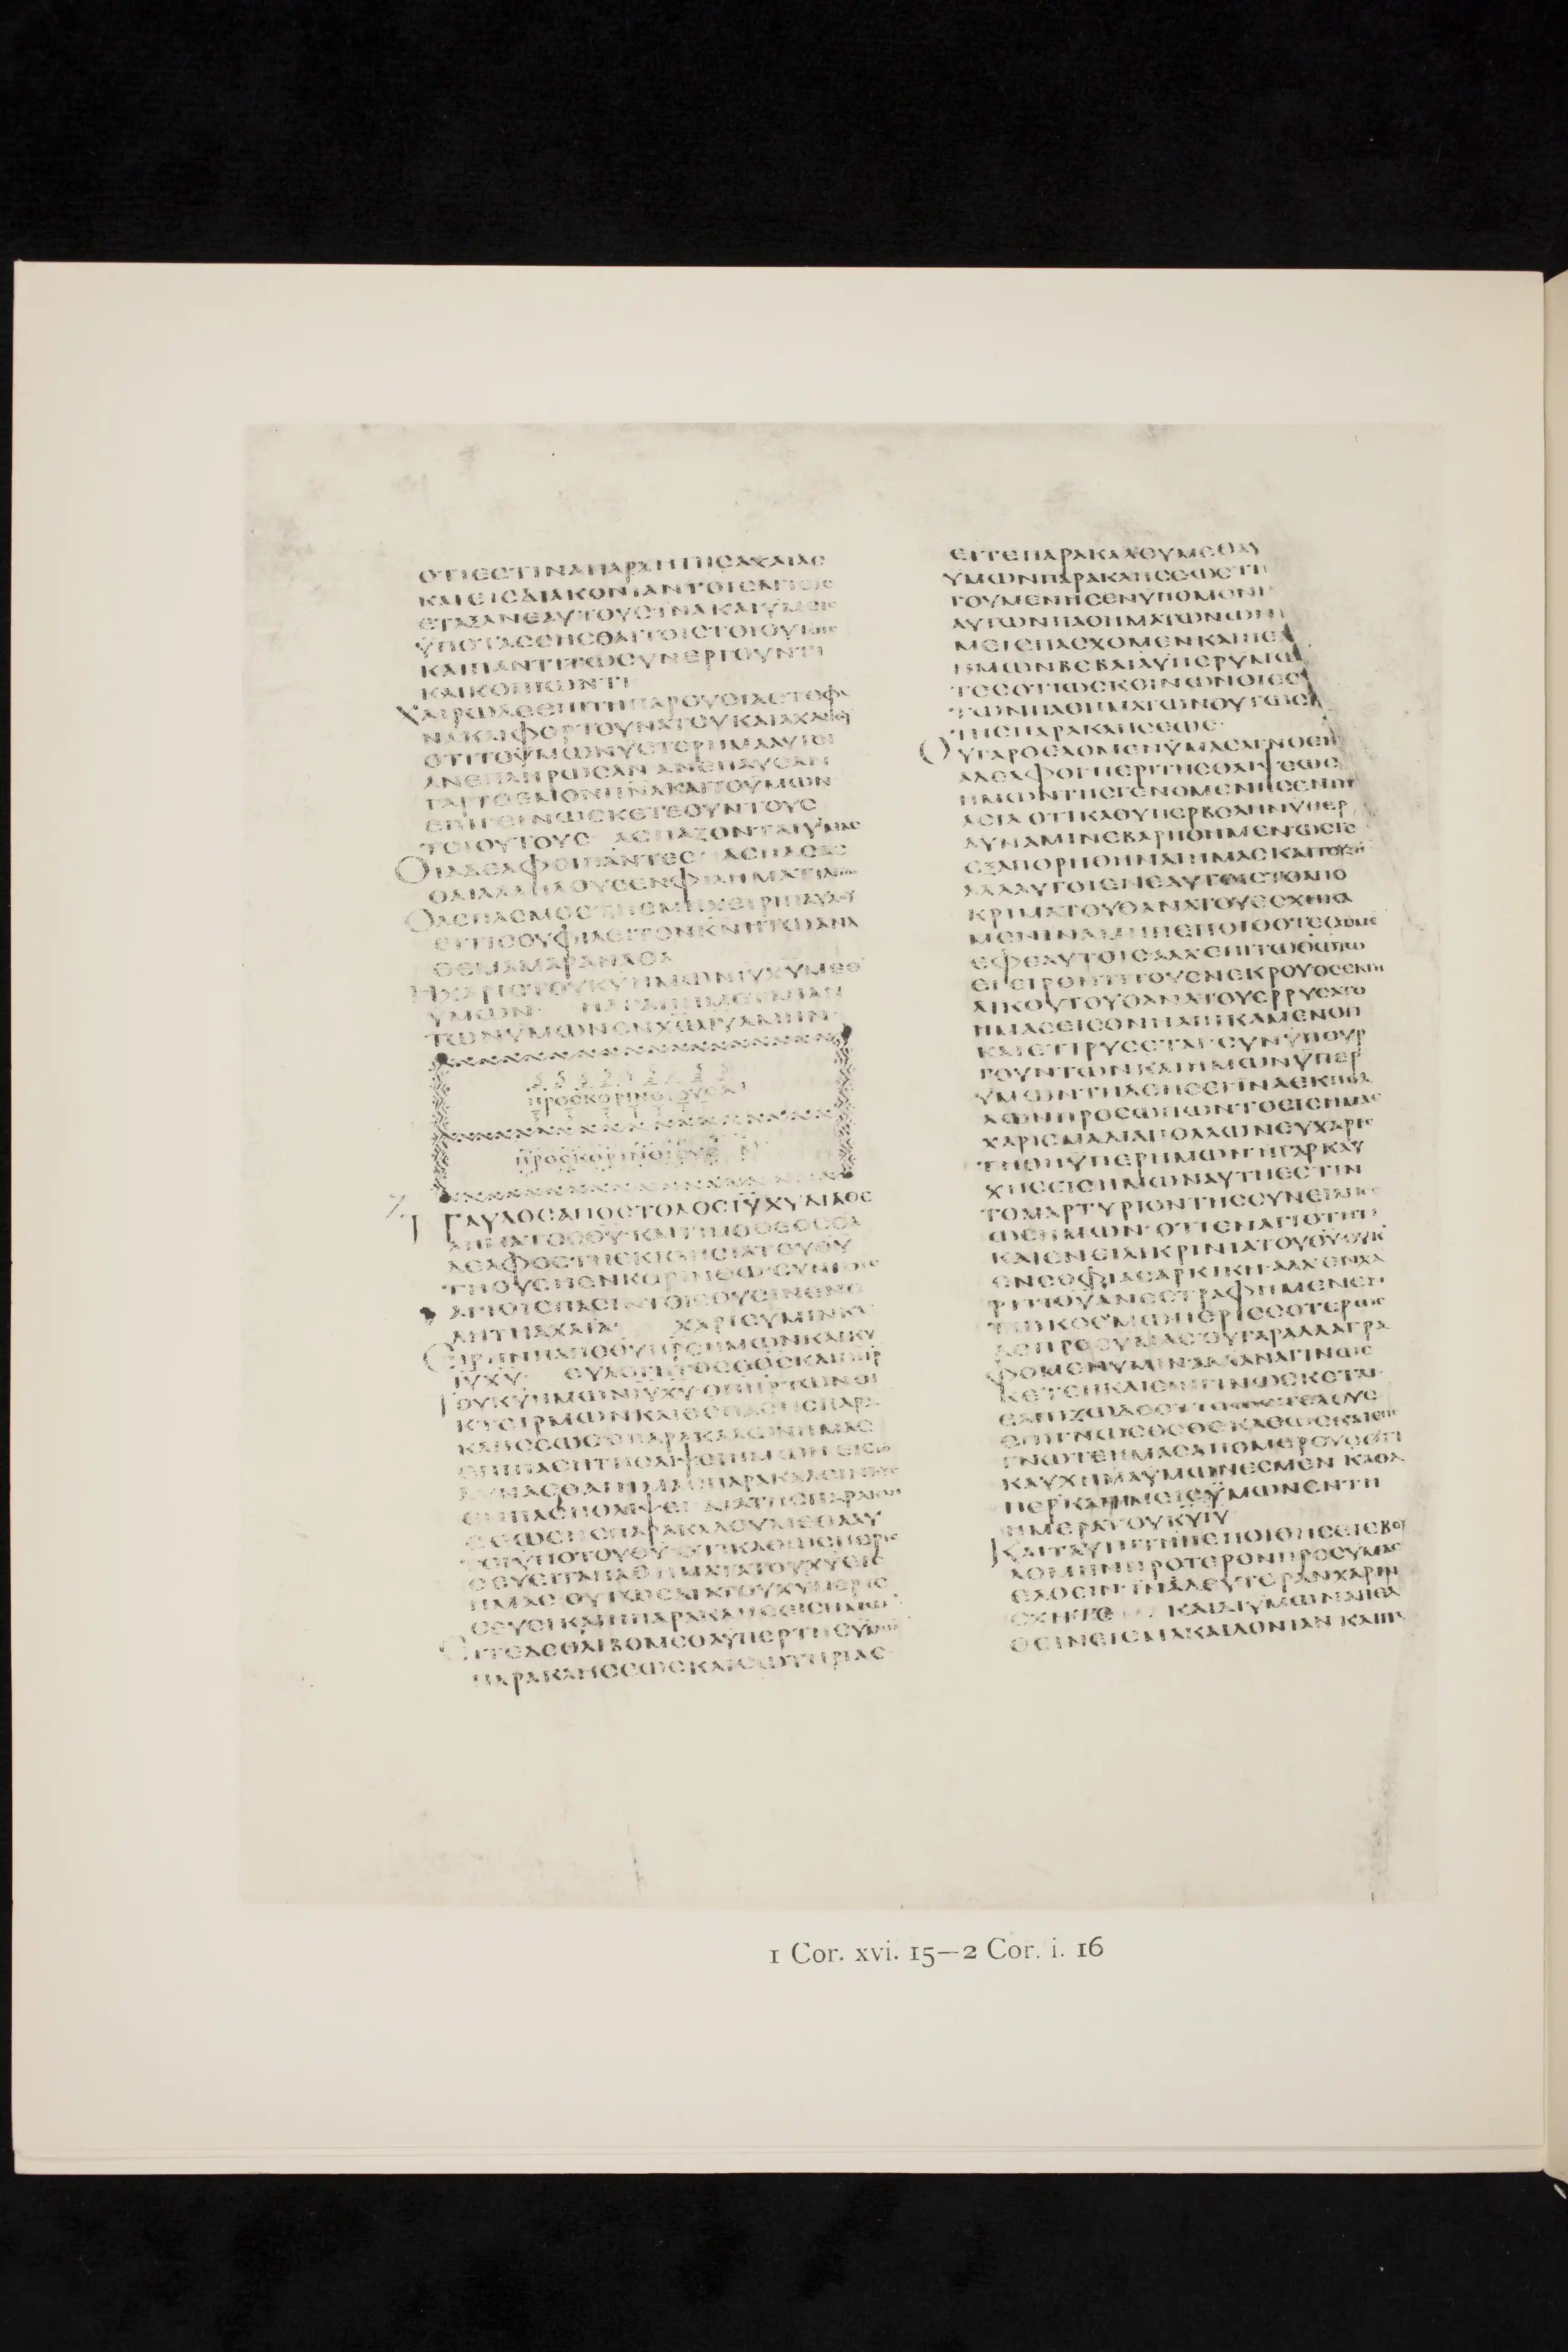 ΟΤΙΕϹΤΙΝΑΠΑΡΧΗΤΗϹΑΧΑΙΑϹ
ΚΑΙΕΙϹΔΙΑΚΟΝΙΑΝΤΟΙϹΑΓΙΟΙϹ
ΕΤΑΞΑΝΕΑΥΤΟΥϹΙΝΑΚΑΙΫΜΕΙϹ
ΫΠΟΤΑϹϹΗϹΘΑΙΤΟΙϹΤΟΙΟΥΤΟΙϹ
ΚΑΙΠΑΝΤΙΤΩϹΥΝΕΡΓΟΥΝΤΙ
ΚΑΙΚΟΠΙΩΝΤΙ
ΧΑΙΡΩΔΕΕΠΙΤΗΠΑΡΟΥϹΙΑϹΤΕΦΑ
ΝΑΚΑΙΦΟΡΤΟΥΝΑΤΟΥΚΑΙΑΧΑΪΚΟΥ
ΟΤΙΤΟΫΜΩΝΥϹΤΕΡΗΜΑΑΥΤΟΙ
ΑΝΕΠΛΗΡΩϹΑΝ ΑΝΕΠΑΥϹΑΝ
ΓΑΡΤΟΕΜΟΝΠΝΑΚΑΙΤΟΫΜΩΝ
ΕΠΙΓΕΙΝΩϹΚΕΤΕΟΥΝΤΟΥϹ
ΤΟΙΟΥΤΟΥϹ ΑϹΠΑΖΟΝΤΑΙΫΜΑϹ
ΟΙΑΔΕΛΦΟΙΠΑΝΤΕϹ ΑϹΠΑϹΑϹ
ΘΑΙΑΛΛΗΛΟΥϹΕΝΦΙΛΗΜΑΤΙΑΓΙΩ
ΟΑϹΠΑϹΜΟϹΤΗΕΜΗΧΕΙΡΙΠΑΥΛΟΥ
ΕΙΤΙϹΟΥΦΙΛΕΙΤΟΝΚΝΗΤΩΑΝΑ
ΘΕΜΑΜΑΡΑΝΑΘΑ
ΗΧΑΡΙϹΤΟΥΚΥΗΜΩΝΙΥΧΥΜΕΘ
ΥΜΩΝ ΗΑΓΑΠΗΜΟΥΜΕΤΑΠΑΝ
ΤΩΝΫΜΩΝΕΝΧΩΙΥΑΜΗΝ
ΠΡΟϹΚΟΡΙΝΘΙΟΥϹΑ
ΠΡΟϹΚΟΡΙΝΘΙΟΥϹ Β
ΠΑΥΛΟϹΑΠΟϹΤΟΛΟϹΙΥΧΥΔΙΑΘΕ
ΛΗΜΑΤΟϹΘΥΚΑΙΤΙΜΟΘΕΟϹΟΑ
ΔΕΛΦΟϹΤΗΕΚΚΛΗϹΙΑΤΟΥΘΥ
ΤΗΟΥϹΗΕΝΚΟΡΙΝΘΩϹΥΝΤΟΙϹ
ΑΓΙΟΙϹΠΑϹΙΝΤΟΙϹΟΥϹΙΝΕΝΟ
ΛΗΤΗΑΧΑΪΑ ΧΑΡΙϹΫΜΙΝΚΑΙ
ΕΙΡΗΝΗΑΠΟΘΥΠΡϹΗΜΩΝΚΑΙΚΥ
ΙΥΧΥ ΕΥΛΟΓΗΤΟϹΟΘϹΚΑΙΠΗΡ
ΤΟΥΚΥΗΜΩΝΙΥΧΥΟΠΗΡΤΩΝΟΙ
ΚΤΕΙΡΜΩΝΚΑΙΘϹΠΑϹΗϹΠΑΡΑ
ΚΛΗϹΕΩϹΟΠΑΡΑΚΑΛΩΝΗΜΑϹ
ΕΠΙΠΑϹΗΤΗΘΛΙΨΕΙΗΜΩΝΕΙϹΤΟ
ΔΥΝΑϹΘΑΙΗΜΑϹΠΑΡΑΚΑΛΕΙΝΤΟΥϹ
ΕΝΠΑϹΗΘΛΙΨΕΙ ΔΙΑΤΗϹΠΑΡΑΚΛΗ
ϹΕΩϹΗϹΠΑΡΑΚΑΛΟΥΜΕΘΑΑΥ
ΤΟΙΫΠΟΤΟΥΘΥΟΤΙΚΑΘΩϹΠΕΡΙϹ
ϹΕΥΕΙΤΑΠΑΘΗΜΑΤΑΤΟΥΧΥΕΙϹ
ΗΜΑϹΟΥΤΩϹΔΙΑΤΟΥΧΥΠΕΡΙϹ
ϹΕΥΕΙΚΑΙΗΠΑΡΑΚΛΗϹΕΙϹΗΜΩΝ
ΕΙΤΕΔΕΘΛΙΒΟΜΕΘΑΫΠΕΡΤΗϹΫΜΩΝ
ΠΑΡΑΚΛΗϹΕΩϹΚΑΙϹΩΤΗΡΙΑϹ
ΕΙΤΕΠΑΡΑΚΑΛΟΥΜΕΘΑΫ
ΫΜΩΝΠΑΡΑΚΛΗϹΕΩϹΤΗ
ΓΟΥΜΕΝΗϹΕΝΫΠΟΜΟΝΗ
ΑΥΤΩΝΠΑΘΗΜΑΤΩΝΩΝ
ΜΕΙϹΠΑϹΧΟΜΕΝΚΑΙΗΕΛ
ΗΜΩΝΒΕΒΑΙΑΫΠΕΡΥΜΩ
ΤΕϹΟΤΙΩϹΚΟΙΝΩΝΟΙΕϹ
ΤΩΝΠΑΘΗΜΑΤΩΝΟΥΤΩϹ
ΤΗϹΠΑΡΑΚΛΗϹΕΩϹ
ΟΥΓΑΡΘΕΛΟΜΕΝΫΜΑϹΑΓΝΟΕΙΝ
ΑΔΕΛΦΟΙΠΕΡΙΤΗϹΘΛΙΨΕΩϹ
ΗΜΩΝΤΗϹΓΕΝΟΜΕΝΗϹΕΝΤΗ
ΑϹΙΑΟΤΙΚΑΘΥΠΕΡΒΟΛΗΝΫΠΕΡ
ΔΥΝΑΜΙΝΕΒΑΡΗΘΗΜΕΝΩϹΤΕ
ΕΞΑΠΟΡΗΘΗΝΑΙΗΜΑϹΚΑΙΤΟΥΖΗΝ
ΑΛΛΑΑΥΤΟΙΕΝΕΑΥΤΟΙϹΤΟΑΠΟ
ΚΡΙΜΑΤΟΥΘΑΝΑΤΟΥΕϹΧΗΚΑ
ΜΕΝΙΝΑΜΗΠΕΠΟΙΘΟΤΕϹΩΜΕ
ΕΦΕΑΥΤΟΙϹΑΛΛΕΠΙΤΩΘΩΤΩ
ΕΓΕΙΡΟΝΤΙΤΟΥϹΝΕΚΡΟΥϹΟϹΕΚΤΗ
ΛΙΚΟΥΤΟΥΘΑΝΑΤΟΥΕΡΡΥϹΑΤΟ
ΗΜΑϹΕΙϹΟΝΗΛΠΙΚΑΜΕΝΟΤΙ
ΚΑΙΕΤΙΡΥϹΕΤΑΙϹΥΝΫΠΟΥΡ
ΓΟΥΝΤΩΝΚΑΙΗΜΩΝΫΠΕΡ
ΫΜΩΝΤΗΔΕΗϹΕΙΙΝΑΕΚΠΟΛ
ΛΩΝΠΡΟϹΩΠΩΝΤΟΕΙϹΗΜΑϹ
ΧΑΡΙϹΜΑΔΙΑΠΟΛΛΩΝΕΥΧΑΡΙϹ
ΤΗΘΗΫΠΕΡΗΜΩΝΗΓΑΡΚΑΥ
ΧΗϹΕΙϹΗΜΩΝΑΥΤΗΕϹΤΙΝ
ΤΟΜΑΡΤΥΡΙΟΝΤΗϹϹΥΝΕΙΔΗϹΕ
ΩϹΗΜΩΝΟΤΙΕΝΑΓΙΟΤΗΤΙ
ΚΑΙΕΝΕΙΛΙΚΡΙΝΙΑΤΟΥΘΥΟΥΚ
ΕΝϹΟΦΙΑϹΑΡΚΙΚΗΑΛΛΕΝΧΑ
ΡΙΤΙΘΥΑΝΕϹΤΡΑΦΗΜΕΝΕΝ
ΤΩΚΟϹΜΩΠΕΡΙϹϹΟΤΕΡΩϹ
ΔΕΠΡΟϹΥΜΑϹΟΥΓΑΡΑΛΛΑΓΡΑ
ΦΟΜΕΝΥΜΙΝΑΛΛΑΝΑΓΙΝΩϹ
ΚΕΤΕΗΚΑΙΕΠΙΓΙΝΩϹΚΕΤΑΙ
ΕΛΠΙΖΩΔΕΟΤΙΕΩϹΤΕΛΟΥϹ
ΕΠΙΓΝΩϹΕϹΘΕΚΑΘΩϹΚΑΙΕΠΕ
ΓΝΩΤΕΗΜΑϹΑΠΟΜΕΡΟΥϹΟΤΙ
ΚΑΥΧΗΜΑΫΜΩΝΕϹΜΕΝ ΚΑΘΑ
ΠΕΡΚΑΙΫΜΕΙϹΫΜΩΝΕΝΤΗ
ΗΜΕΡΑΤΟΥΚΥΙΥ
ΚΑΙΤΑΥΤΗΤΗΠΕΠΟΙΘΗϹΕΙΕΒΟΥ
ΛΟΜΗΝΠΡΟΤΕΡΟΝΠΡΟϹΥΜΑϹ
ΕΛΘΕΙΝΙΝΑΔΕΥΤΕΡΑΝΧΑΡΙΝ
ϹΧΗΤΕ ΚΑΙΔΙΥΜΩΝΑΠΕΛ
ΘΕΙΝΕΙϹΜΑΚΑΙΔΟΝΙΑΝ ΚΑΙΠΑ
1 Cor. xvi. 15—2 Cor. i. 16